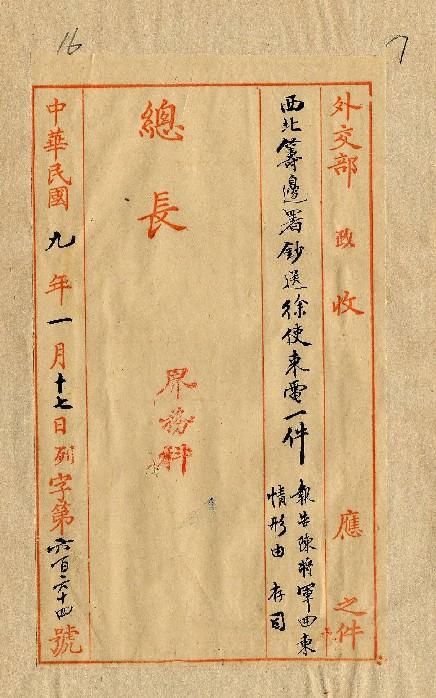 16
7
外交部 政 收 應 之件
西北籌邊署鈔送徐使來電一件
報告陳將軍回東
情形由 存司
總長
界務科
中華民國九年一月十七日列字第六百六十四號